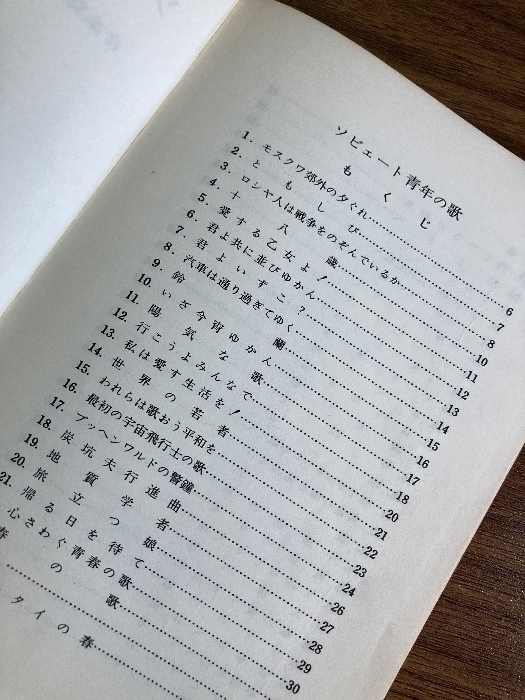 ソビェート青年の歌
もくじ
1. モスクワ郊外の夕ぐれ……6
2. ともしび……7
3. ロシヤ人は戦争をのぞんでいるか……8
4. 十八歳……10
5. 愛する乙女よ!……11
6. 君よ共に並びゆかん……12
7. 君よいずこ?……13
8. 汽車は通り過ぎてゆく……14
9. 鈴蘭……15
10. いざ今宵ゆかん……16
11. 陽気な歌……17
12. 行こうよみんなで……18
13. 私は愛す生活を!……20
14. 世界の若者……21
15. われらは歌おう平和を……22
16. 最初の宇宙飛行士の歌……23
17. ブッヘンワルドの警鐘……24
18. 炭坑夫行進曲……26
19. 地質学者……27
20. 旅立つ娘……28
21. 帰る日を待て……29
心さわぐ青春の歌……30
春の歌……
タイの春……